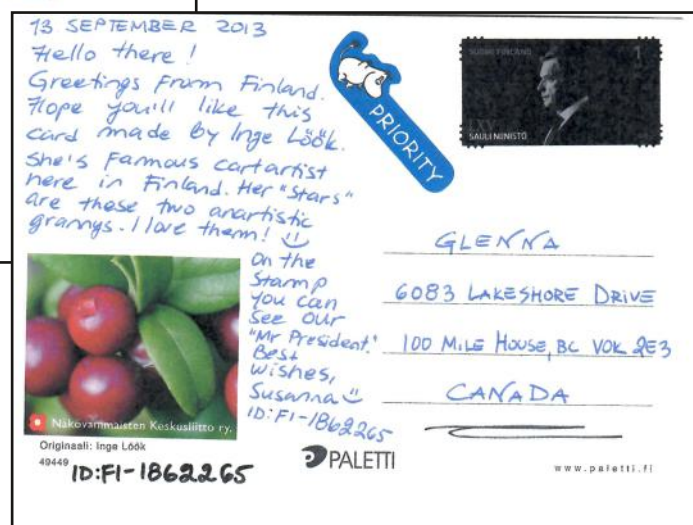 13 SEPTEMBER 2013
Hello there!
Greetings from Finland.
Hope you'll like this
card made by Inge Löök.
She's Fammous cartartist
here in Finland. Her "Stars"
are these two anartistic
grannys. I love them!
On the
Stamp
you can
see our
"Mr President."
Best
wishes,
Susanna
ID:FI-1862265
PRIORITY
SUOMI FINLAND
1
LXV
SAULI NIINISTÖ
GLENNA
6083 LAKESHORE DRIVE
100 MILE HOUSE, BC V0K 2E3
CANADA
Näkövammaisten Keskusliitto ry.
Originaali: Inge Löök
49449
ID:FI-1862265
PALETTI
www.paletti.fi